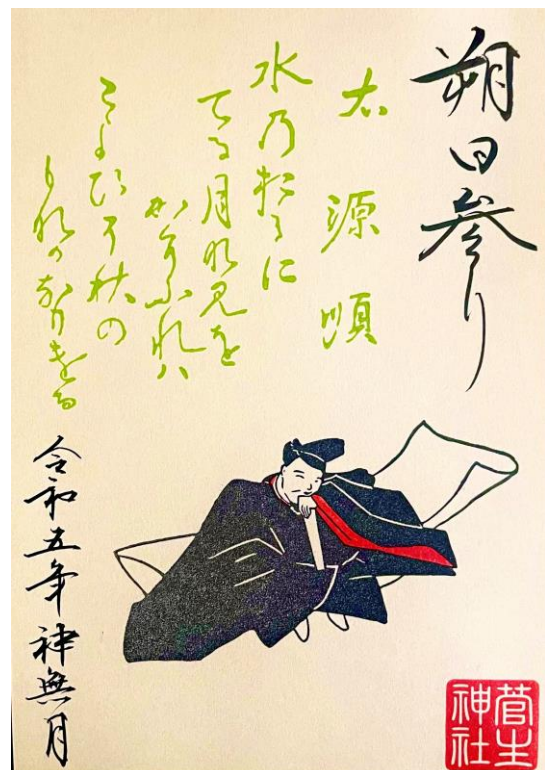 朔日参り
右 源順
水乃おもに
てる月な見を
かそふれハ
こよひそ秋の
もなかなりける
令和五年 神無月
菅生
神社